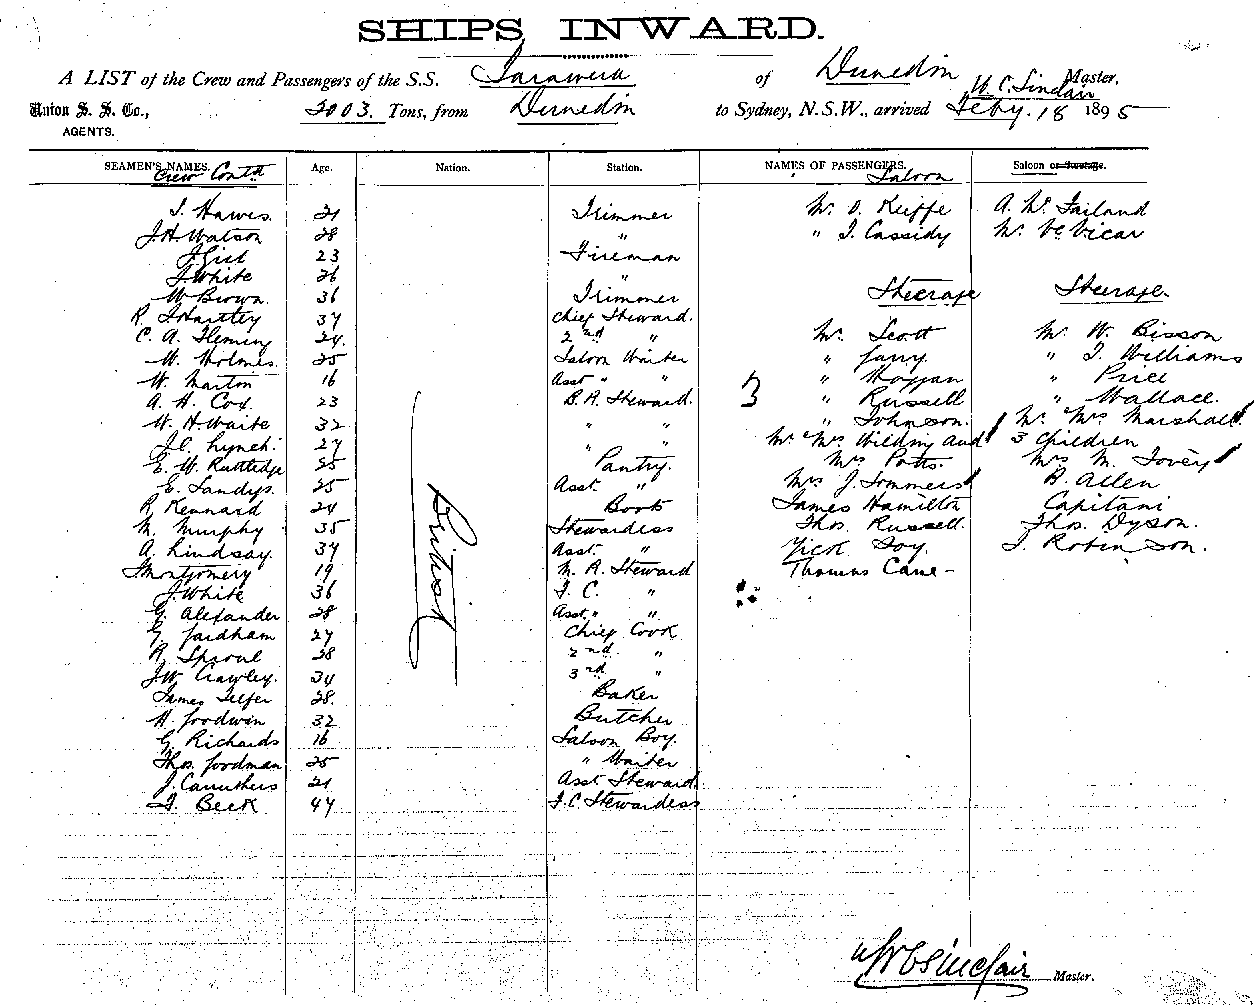 SHIPS INWARD.
A LIST of the Crew and Passengers of the S.S. Tarawera of Dunedin W. C. Sinclair Master,
Union S. S. Co., AGENTS. 2003 Tons, from Dunedin to Sydney, N.S.W., arrived Feby. 18 1895
SEAMEN'S NAMES. Age. Nation. Station. NAMES OF PASSENGERS. Saloon or Steerage.
Crew Contd Saloon
Hawes 21 Trimmer Mr. O. Keiffe A. Mc
J.H. Watson 28 " " T. Cassidy Mr. Vicar
23 Fireman
J. White 26 "
W Brown 36 Trimmer Steerage Steerage
R. J Hartley 37 Chief Steward.
C. A. Fleming 24. 2nd " Mr. Scott Mr. W. Bisson
W. Holmes 25 Saloon Waiter " Garry " J. Williams
W. Marton 16 Asst " " " Hoggan " Price
A. H. Cox 23 B. A. Steward. 3 " Russell " Wallace.
W. H Waite 32 " " " Johnson. Mr. Mrs Marshall
J.C. Lynch. 27 " " Mr. Mrs. Wilding and 3 Children
E. W. Rutledge 25 Pantry. Mrs Potts. Mrs M. Tovey
E. Sandys. 25 Asst. " Mrs J. Sommers B. Allen
R Kennard 24 Boots James Hamilton Capitani
M. Murphy 35 Stewardess Thos. Russell. Thos. Dyson.
A. Lindsay. 37 Asst. " Yick Soy. J. Robinson.
Montgomery 19 M. R. Steward Thomas Cane -
J. White 36 F. C. "
G. Alexander 28 Asst. " "
G. Jardham 27 Chief Cook
R. Sproul 28 2nd. "
J.W Crawley. 34 3rd "
James Telfer 28. Baker
H. Goodwin 32 Butcher
G. Richards 16 Saloon Boy.
Thos. Goodman 25 " Waiter
J. Carruthers 21 Asst Steward.
Beck 47 F.C Stewardess
British
W C Sinclair Master.